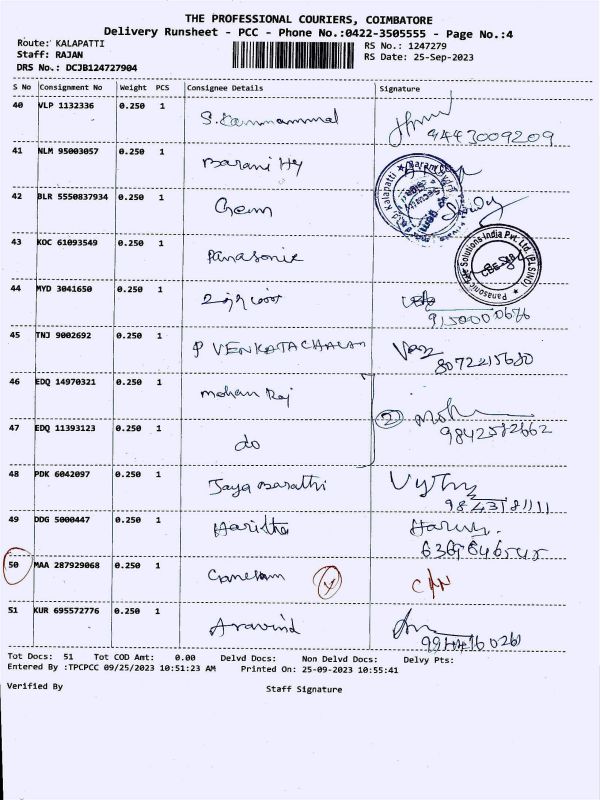 THE PROFESSIONAL COURIERS, COIMBATORE
Delivery Runsheet - PCC - Phone No.:0422-3505555 - Page No.:4
Route: KALAPATTI RS No.: 1247279
Staff: RAJAN RS Date: 25-Sep-2023
DRS No.: DCJB124727904
S No Consignment No Weight PCS Consignee Details Signature
40 VLP 1132336 0.250 1 S. Kannammal
9443009209
41 NLM 95003057 0.250 1 Barani Hy
42 BLR 5550837934 0.250 1 Gem
43 KOC 61093549 0.250 1 Panasonic
Solutions India Pvt. Ltd.
44 MYD 3041650 0.250 1
9150000676
45 TNJ 9002692 0.250 1 P VENKATACHALAM
8072215680
46 EDQ 14970321 0.250 1 Mohan Raj
2
9842582662
47 EDQ 11393123 0.250 1 do
48 PDK 6042097 0.250 1 Jaya Barathi
49 DDG 5000447 0.250 1 Haritha
50 MAA 287929068 0.250 1 Ganesan
51 KUR 695572776 0.250 1 Aravind
Tot Docs: 51 Tot COD Amt: 0.00 Delvd Docs: Non Delvd Docs: Delvy Pts:
Entered By :TPCPCC 09/25/2023 10:51:23 AM Printed On: 25-09-2023 10:55:41
Verified By Staff Signature